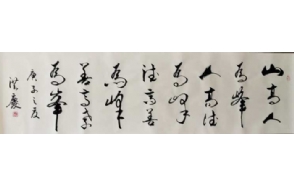 山高人
为峰
人高德
为峰
德高善
为峰
善高孝
为峯
庚子之夏